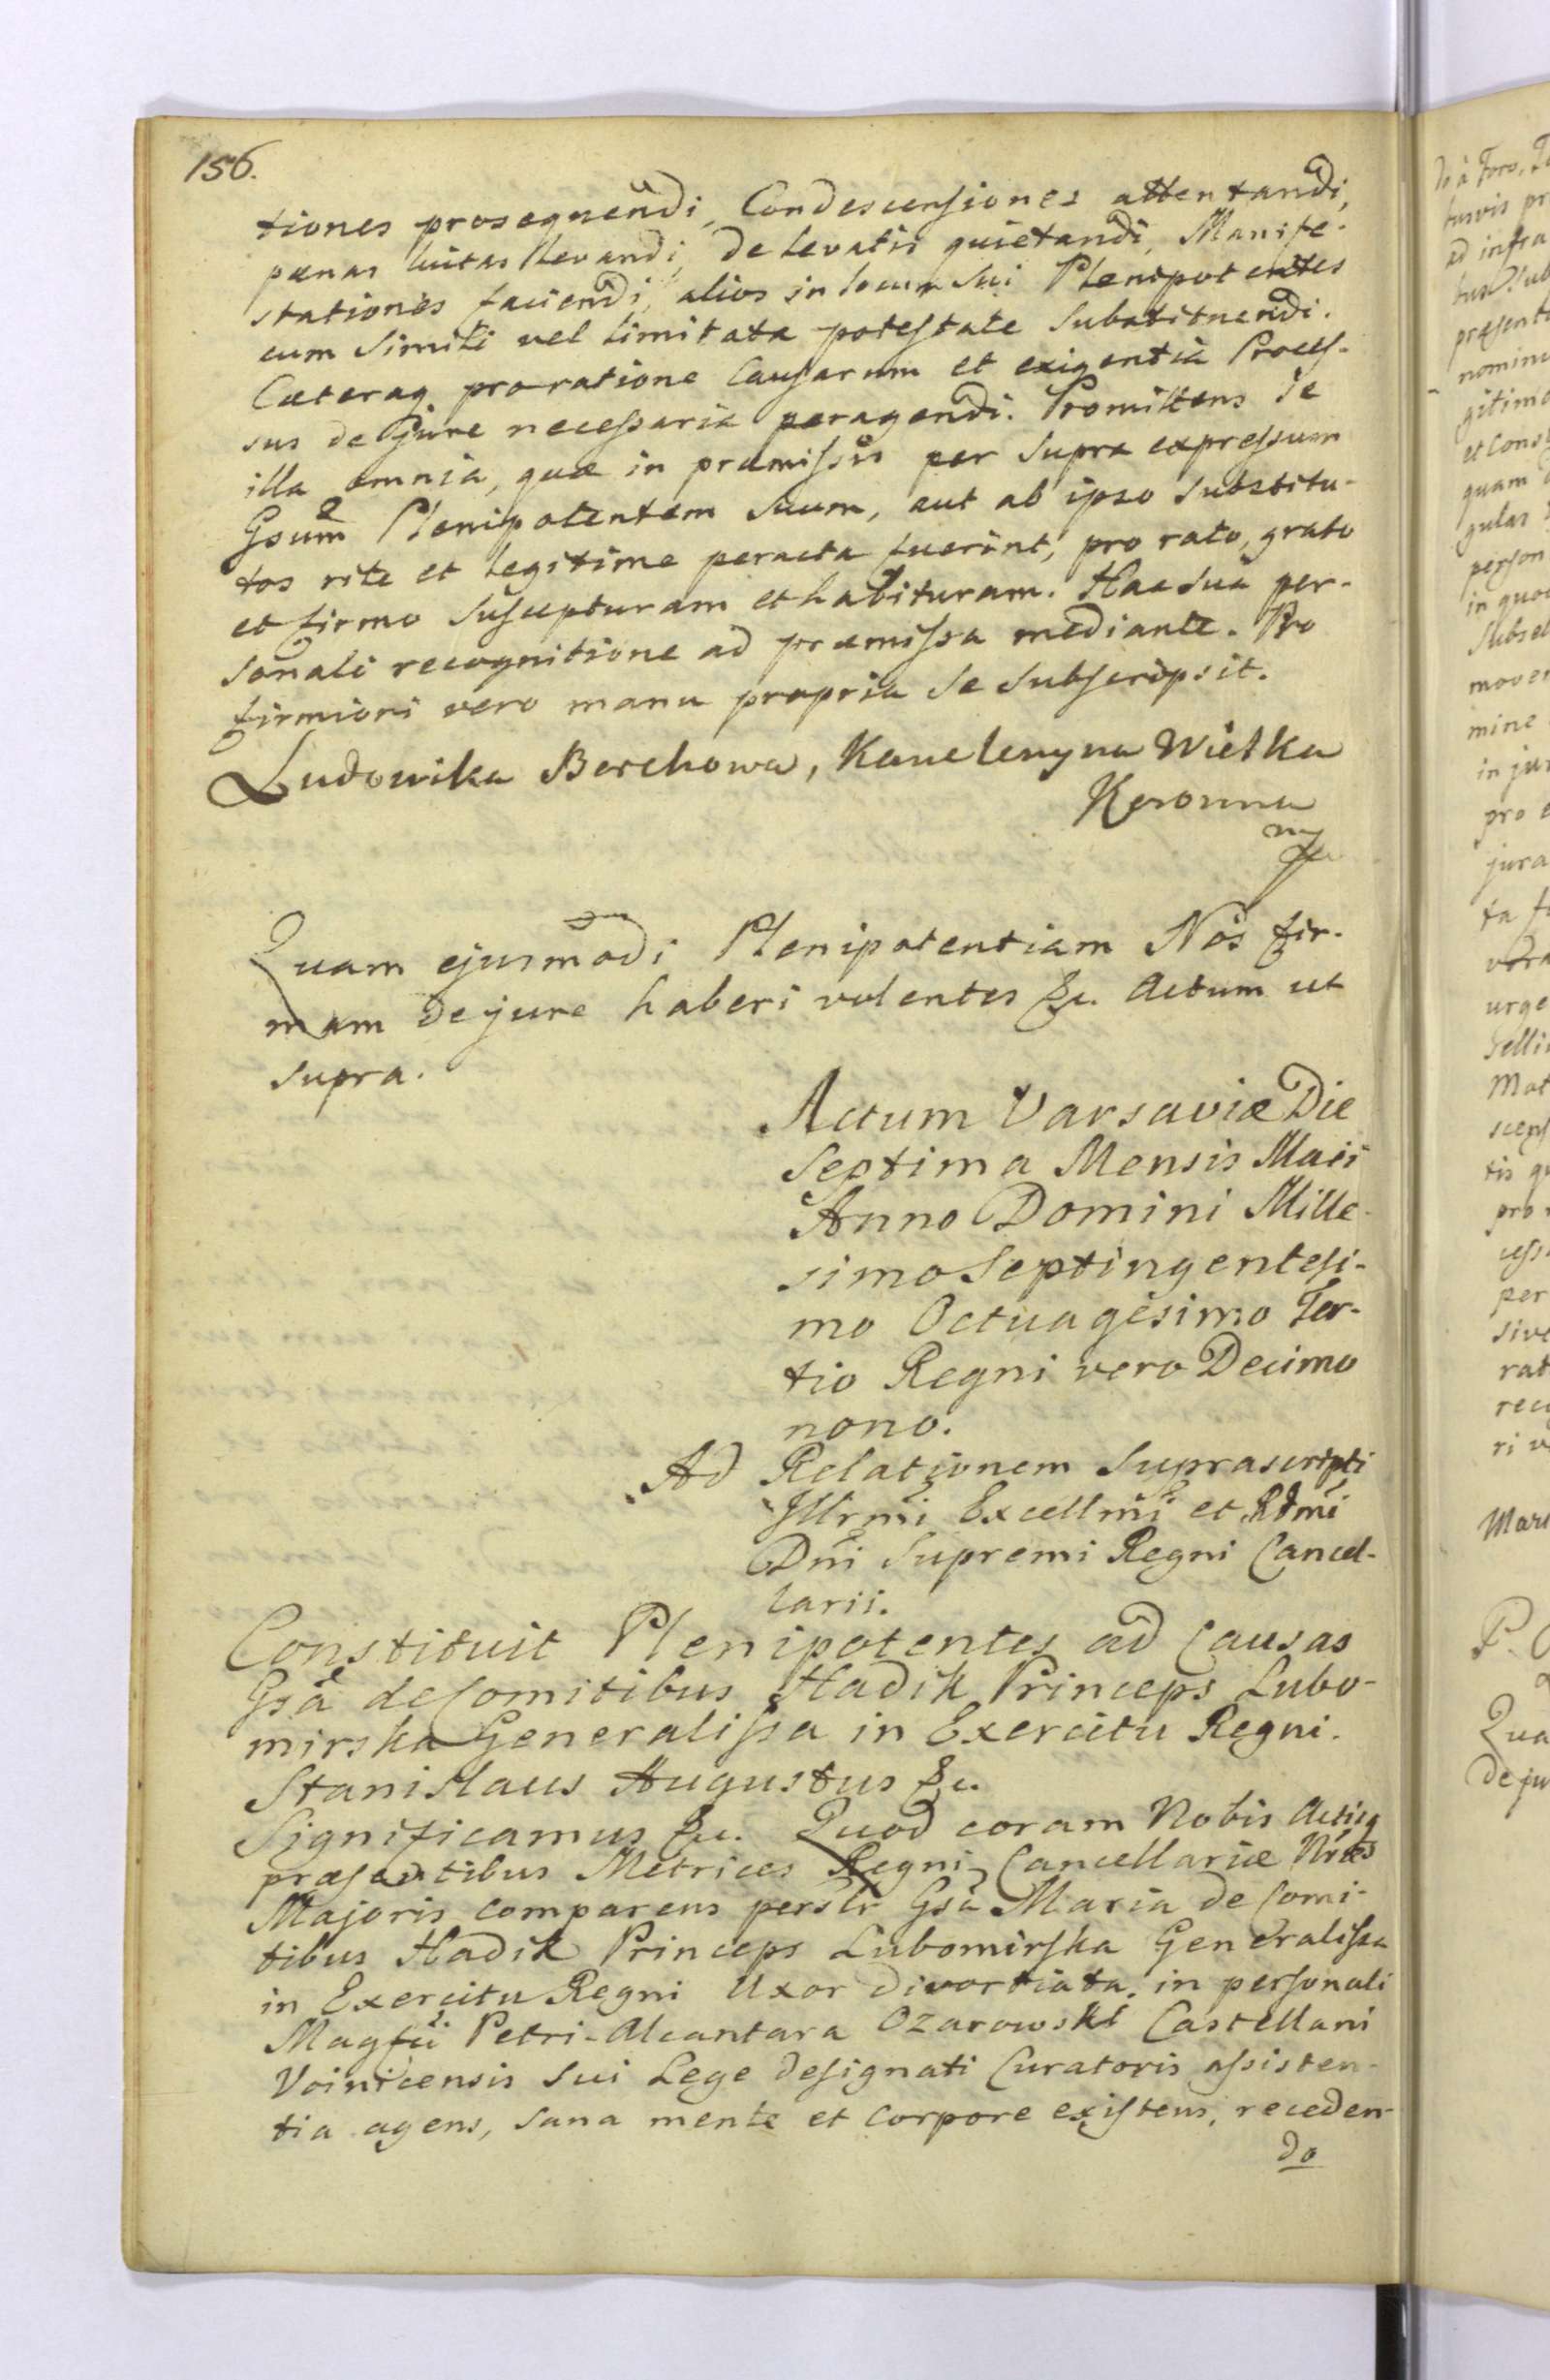 156.
tiones prosequendi, Condescensiones attentandi,
pœnas luitas levandi, de levatis quietandi, Manife-
stationes faciendi, alios in locum sui Plenipotentes
cum simili vel limitata potestate substituendi.
Cæteraq pro ratione Causarum et exigentia Proces-
sus de jure necessaria peragendi. Promittens se
illa omnia, quæ in præmissis per supra expressum
Gsum Plenipotentem suum, aut ab ipso substitu-
tos rite et legitime peracta fuerint, pro rato, grato
et firmo suscepturam et habituram. Hac sua per-
sonali recognitione ad præmissa mediante. Pro
firmiori vero manu propria se subscripsit.
Ludowika Borchowa, Kanclerzyna Wielka
Koronna
mp
Quam ejusmodi Plenipotentiam Nos fir-
mam de jure haberi volentes &c. Actum ut
supra.
Actum Varsaviæ Die
Septima Mensis Maii
Anno Domini Mille-
simo Septingentesi-
mo Octuagesimo Ter-
tio Regni vero Decimo
nono.
Ad Relationem Suprascripti
Illrmi Excellmi et Rdmi
Dni Supremi Regni Cancel-
larii.
Constituit Plenipotentes ad Causas
Gsa de Comitibus Hadik Princeps Lubo-
mirska Generalissa in Exercitu Regni.
Stanislaus Augustus &c.
Significamus &c. Quod coram Nobis Actisq
præsentibus Metrices Regni Cancellariæ Nræs
Majoris comparens persnlr Gsa Maria de Comi-
tibus Hadik Princeps Lubomirska Generalissa
in Exercitu Regni Uxor divortiata, in personali
Magfci Petri-Alcantara Ozarowski Castellani
Voinicensis sui Lege designati Curatoris assisten-
tia agens, sana mente et corpore existens, receden-
do